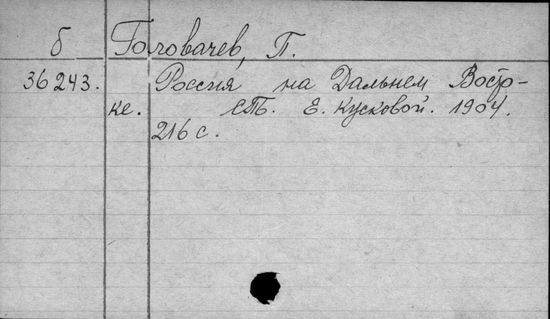 б Головачев, П.
36243. Россия на Дальнем Восто-
ке. СПб. Е. Кусковой. 1904.
216 с.